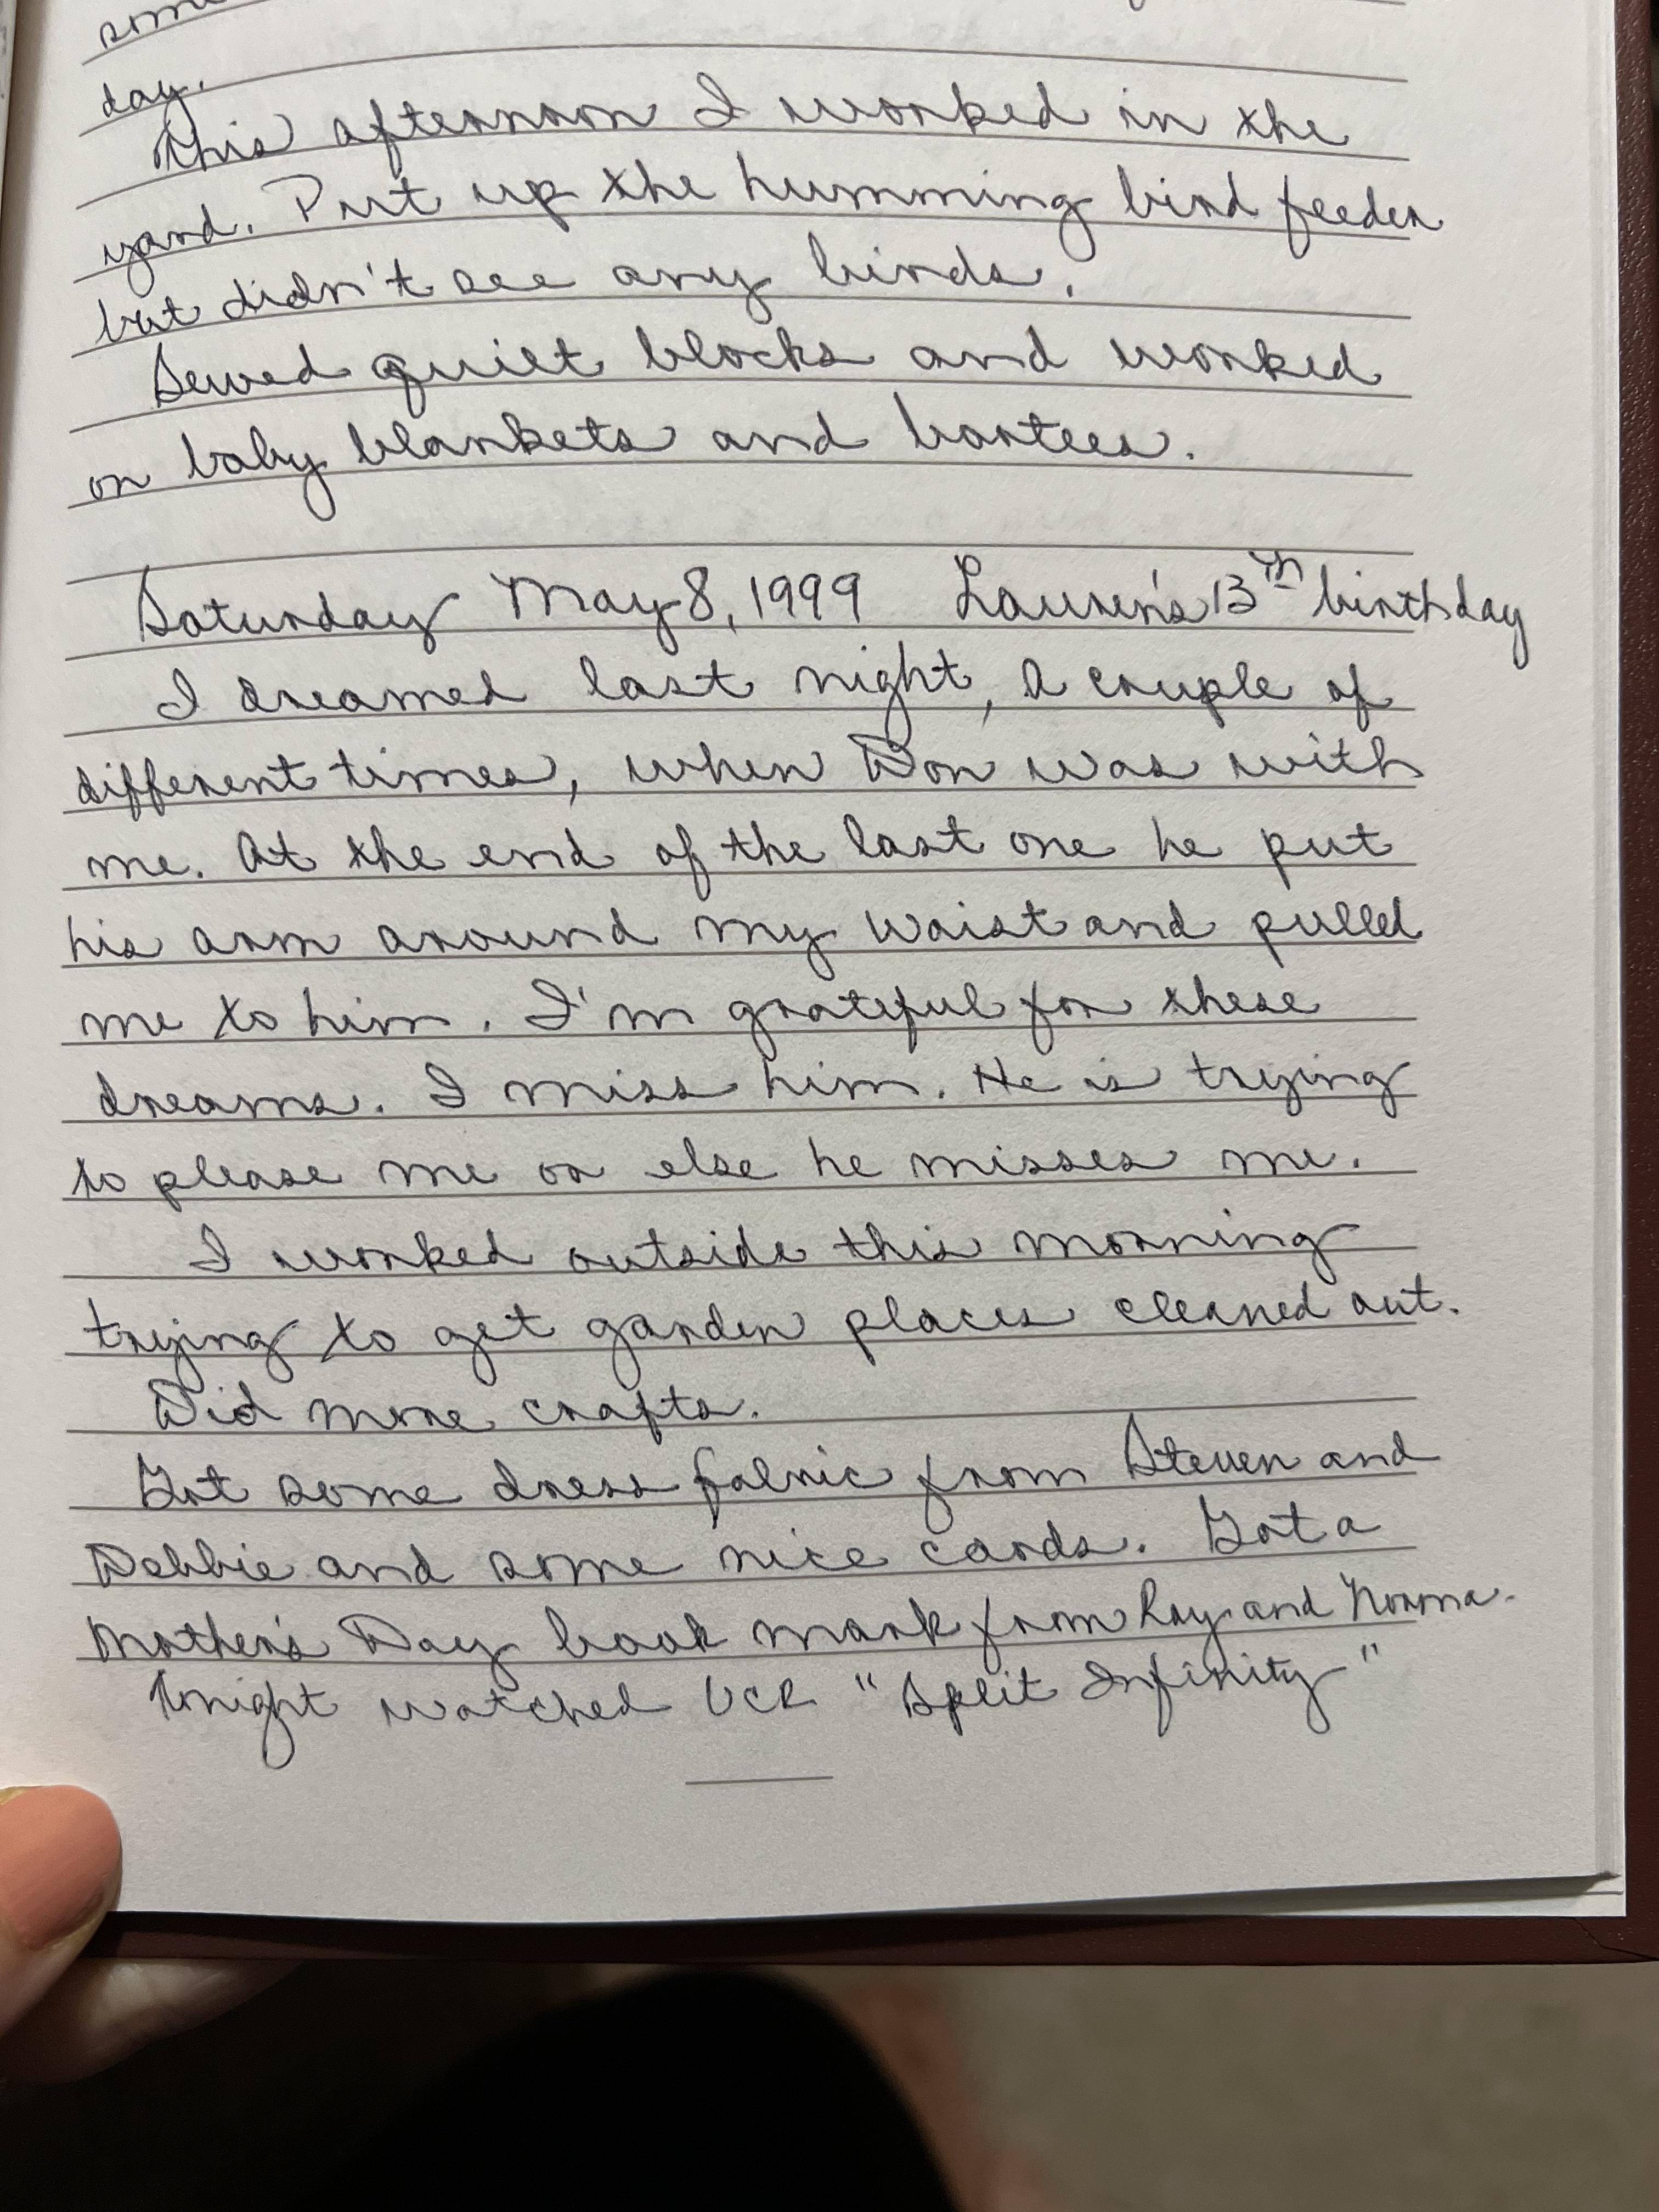 some
day.
This afternoon I worked in the
yard. Put up the humming bird feeder
but didn't see any birds.
Sewed quilt blocks and worked
on baby blankets and bootees.
Saturday May 8, 1999 Lauren's 13th birthday
I dreamed last night, a couple of
different times, when Don was with
me. At the end of the last one he put
his arm around my waist and pulled
me to him. I'm grateful for these
dreams. I miss him. He is trying
to please me or else he misses me.
I worked outside this morning
trying to get garden places cleaned out.
Did more crafts.
Got some dress fabric from Steven and
Debbie and some nice cards. Got a
Mother's Day book mark from Ray and Norma.
Tonight watched VCR "Split Infinity"